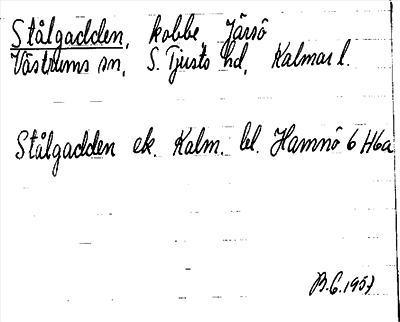 Stålgadden, kobbe Järsö
Västrums sn, S. Tjusts hd, Kalmar l.
Stålgadden ek. Kalm. bl. Hamnö 6 H6a
B.G. 1957